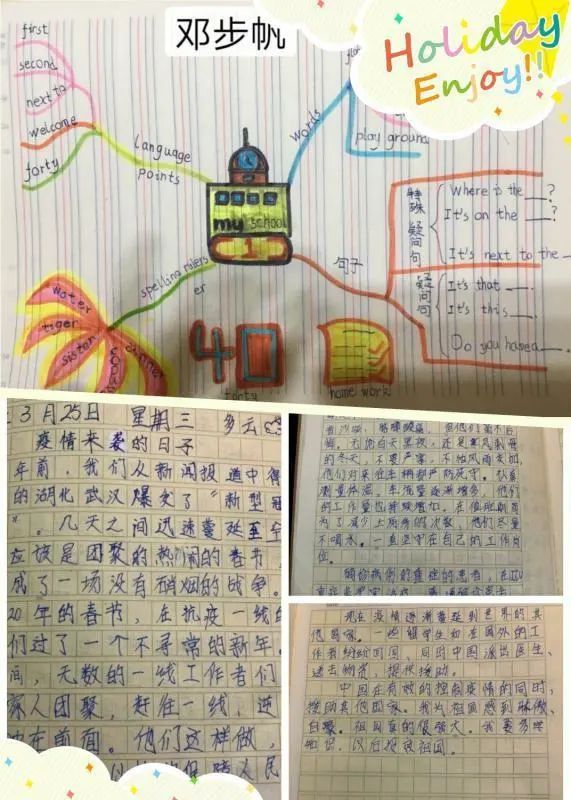 邓步帆
Holiday
Enjoy!!
first
second
next to
welcome
forty
language
points
words
play ground
my SCHOOL
1
句子
特殊疑问句
Where is the ___?
It's on the ___?
It's next to the
疑问句
It's that ___.
It's this ___.
Do you have a ___.
spelling rulers
er
water
tiger
sister
dinner
40
forty
home work
3月25日 星期三 多云
疫情来袭的日子
年前,我们从新闻报道中得
的湖北武汉爆发了“新型冠
”。几天之间迅速蔓延至全
应该是团聚的热闹的春节,
成了一场没有硝烟的战争。
20年的春节,在抗疫一线的
们过了一个不寻常的新年。
间,无数的一线工作者们
家人团聚,赶往一线,逆
在前面。他们这样做,
人民
的冬天,不要严寒,不怕风雨交加,
他们对来往车辆都严防死守。认真
测量体温。车流量逐渐增多,他们
的工作量也持续增加。在值班期间
为了减少上厕所的次数,他们尽量
不喝水。一直坚守在自己的工作岗
位。
现在疫情逐渐蔓延到世界的其
他国家。一些留学生和在国外的工
作者纷纷回国,同时中国派出医生、
送去物资,提供援助。
中国在有效的控制疫情的同时,
援助其他国家。我为祖国感到骄傲、
自豪。祖国真的很强大。我要努学
地 ,以后报效祖国。